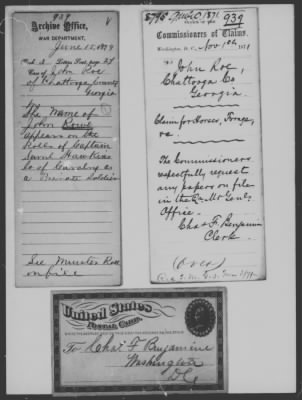 939
Archive Office,
WAR DEPARTMENT,
June 15, 1874
Case of John Roe
of Chattooga County
Georgia
The Name of
John
appears on the
Rolls of Captain
Saml Hawkins
Co of Cavalry as
a Private Soldier
See Muster Roll
on file
939
Office of the
Commissioners of Claims.
Washington, D. C., Nov 10th 1871
John Roe,
Chattooga Co
Georgia.
Claim for Horses, Forage,
&c.
The Commissioners
respectfully request
any papers on file
in the Qr. Mr Genl's
Office.
Chas F. Benjamin
Clerk.
(Over)
United States
Postal Card.
To Chas F Benjamin
Washington
DC